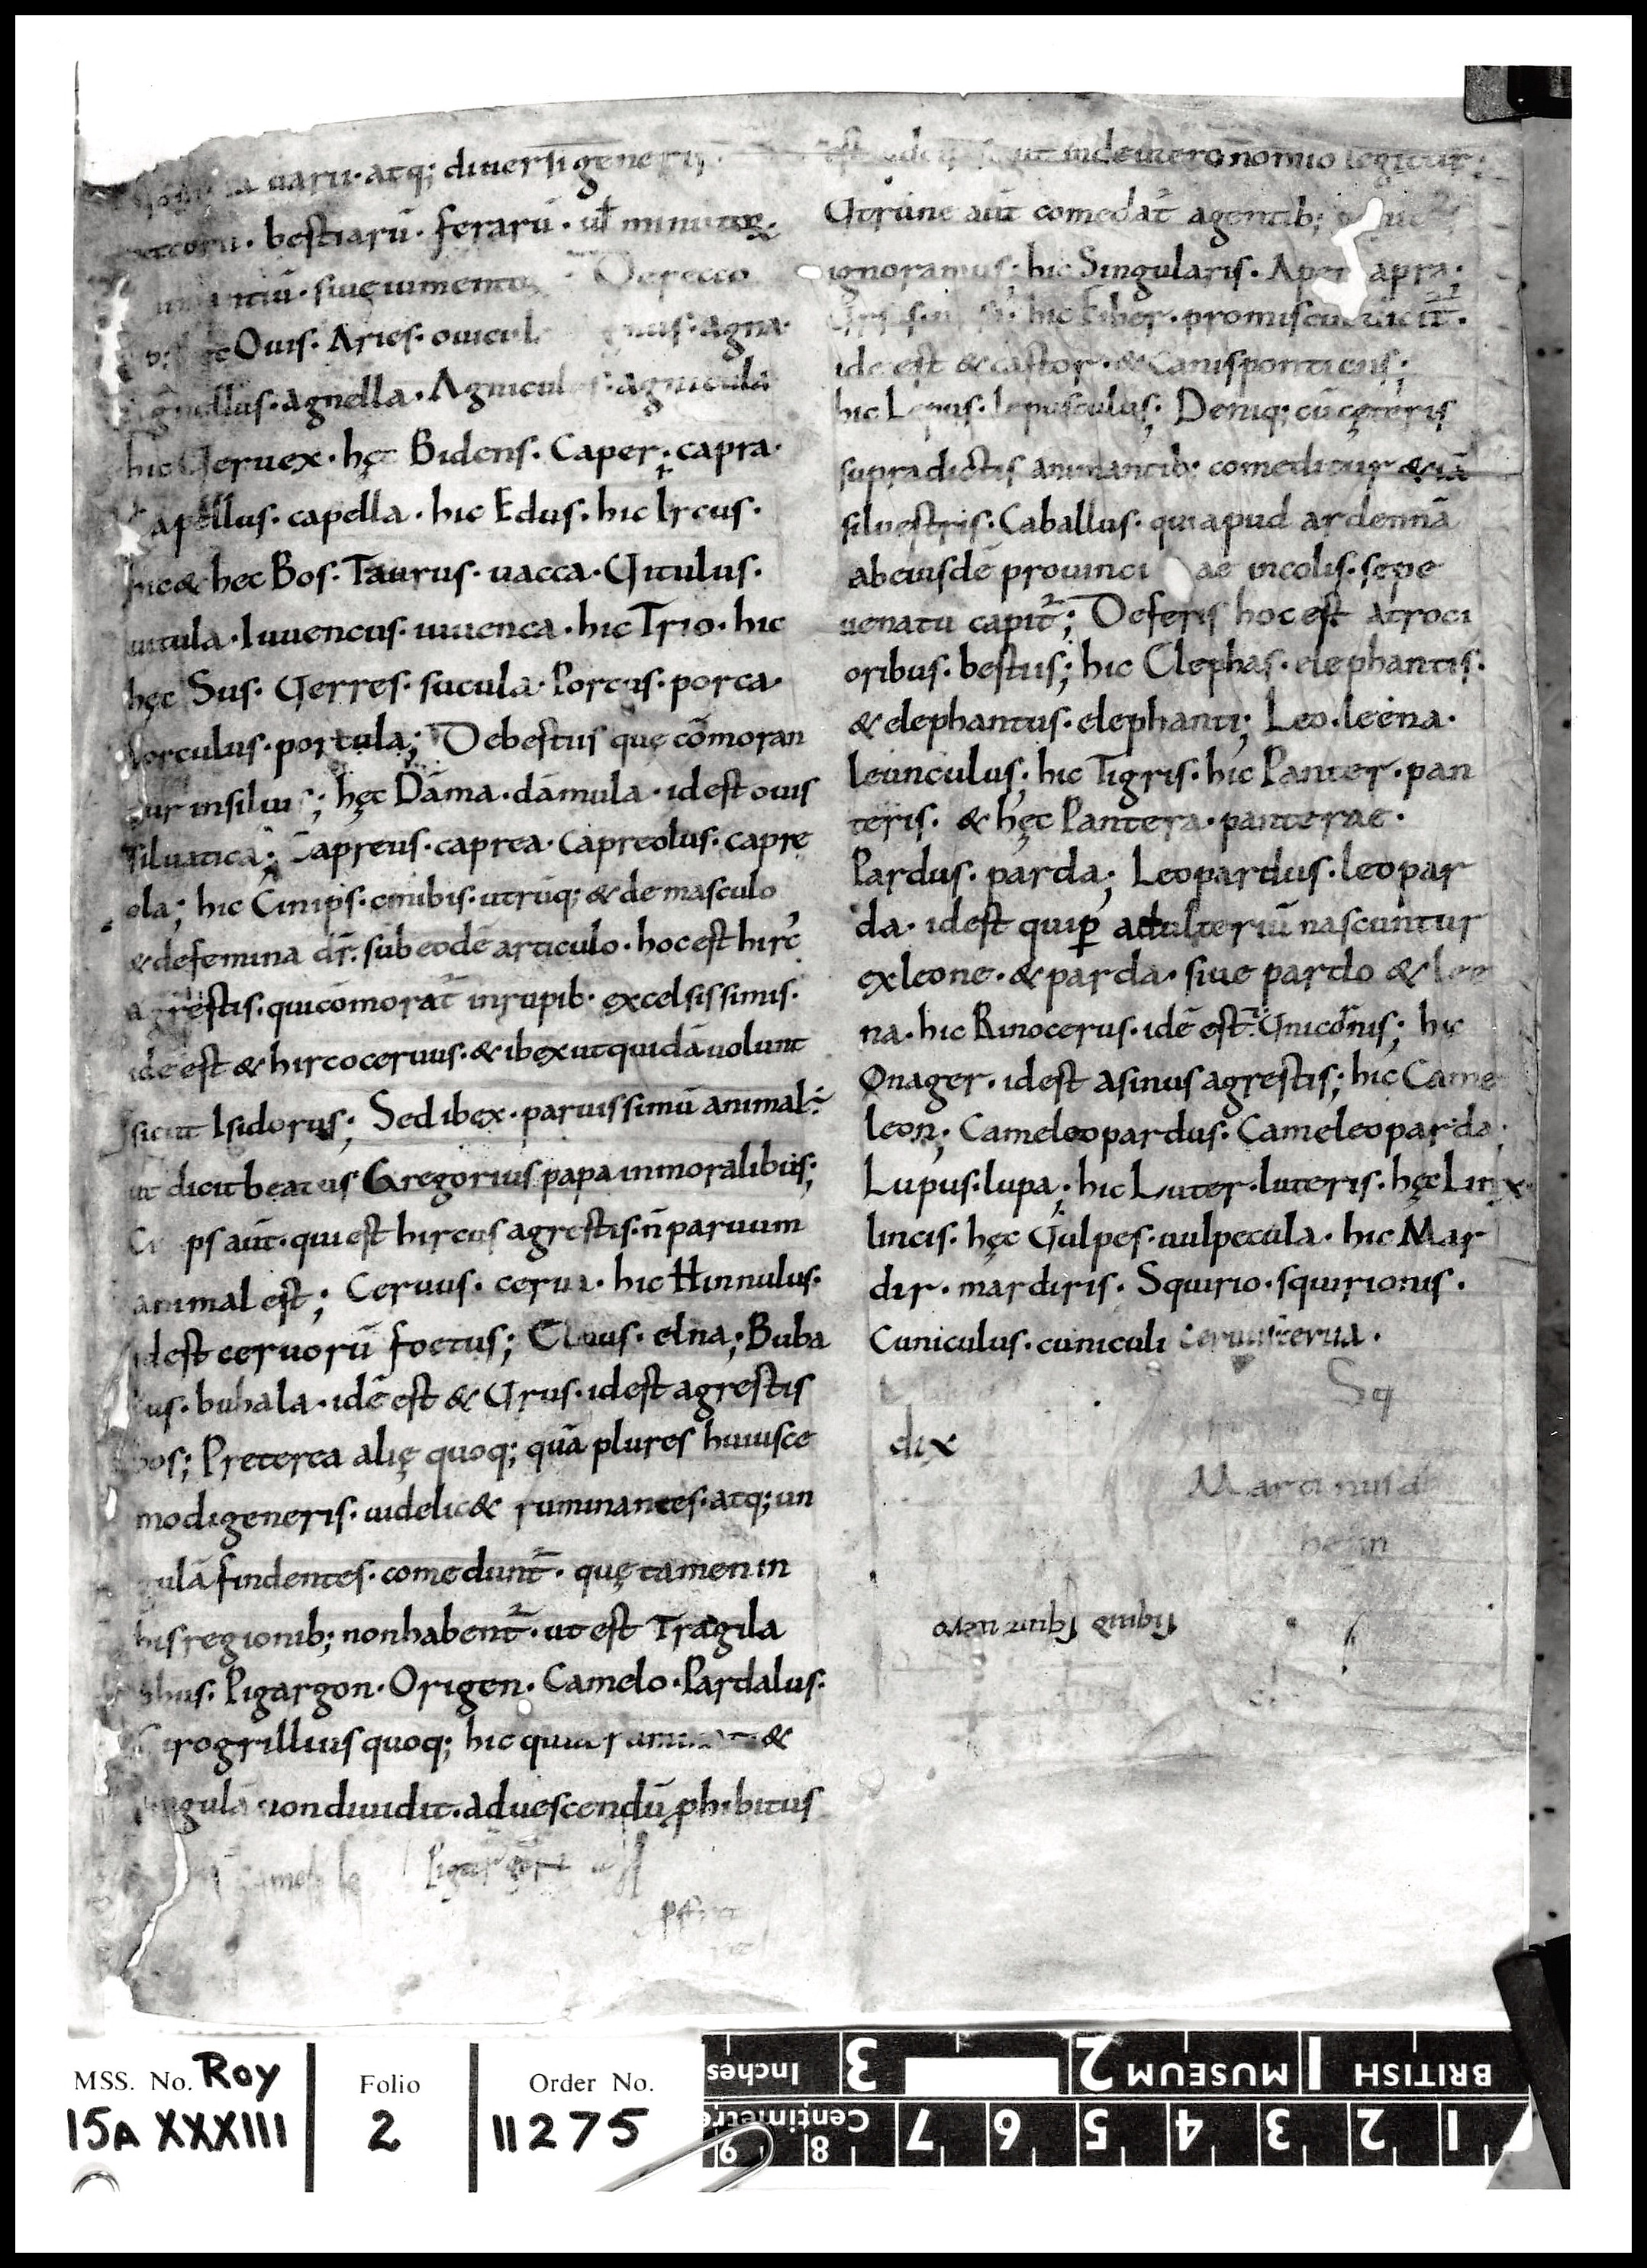 uarii · atq; diuersi generis ·
bestiarū · ferarū · uł minutorꝝ ·
siuę iumento De pecco
Ouis · Aries · ouicul agna ·
Agnellus · agnella · Agniculus · agnicula
hic Ueruex · hęc Bidens · Caper · capra ·
Capellus · capella · hic Edus · hic Ircus ·
hic & hec Bos · Taurus · uacca · Uitulus ·
uitula · Iuuencus · iuuenca · hic Trio · hic
hęc Sus · Uerres · sucula · Porcus · porca ·
Porculus · portula; De bestiis quę cōmoran
tur in siluis; hęc Dāma · dāmula · id est ouis
Siluatica; Capreus · caprea · Capreolus · capre
ola; hic Cinips · cinibis · utrūq; & de masculo
& de femina dr̄ · sub eodē articulo · hoc est hirc'
agrestis · qui cōmorat̄ in rupib · excelsissimis ·
idē est & hircoceruus · & ibex ut quidā uolunt
sicut Isidorus; Sed ibex · paruissimū animal ÷
ut dicit beatus Gregorius papa in moralibus;
Ci ps aūt · qui est hircus agrestis · n̄ paruum
animal est; Ceruus · cerua · hic Hinnulus ·
id est ceruorū foetus; elna; Buba
lus · bubala · idē est & Urus · id est agrestis
bos; Preterea alię quoq; quā plures huiusce
modi generis · uidelic& ruminantes · atq; un
gulā findentes · comedunt̄ · quę tamen in
his regionib; non habent̄ · ut est Tragila
phus · Pigargon · Origen · Camelo · Pardalus ·
irogrillius quoq; hic quia ruminat &
ungulā non diuidit · ad uescendū ꝓhibitus
est ut in deuteronomio legitur;
Utrūne aūt comedat̄ a gentib;
ignoramus; hic Singularis · Aper apra ·
Ursus · hic Fiber · promiscu
idē est & castor · & Canis ponticus;
hic Lepus · lepusculus; Deniq; cū cęteris
supradictis animantib; comeditur &iā
siluestris · Caballus · qui apud ardennā
ab eiusdē prouinci ae incolis · sepe
uenatu capit̄; De feris hoc est atroci
oribus · bestiis; hic Elephas · elephantis ·
& elephantus · elephanti; Leo · leena ·
leunculus; hic Tigris · hic Panter · pan
teris · & hęc Pantera · panterae ·
Pardus · parda; Leopardus · leopar
da · id est qui ꝑ adulteriū nascuntur
ex leone · & parda · siue pardo & lee
na · hic Rinocerus · idē est · Unicornis; hic
Onager · id est asinus agrestis; hic Came
leon; Cameleopardus · Cameleoparda ·
Lupus · lupa; hic Luter · luteris · hęc Linx ·
lincis · hęc Uulpes · uulpecula · hic Mar
dir · mardiris · Squirio · squirionis ·
Cuniculus · cuniculi ceruus cerua ·
Sq
dix
Martinus
MSS. No. Roy
15A XXXIII
Folio
2
Order No.
11275
BRITISH MUSEUM
Inches
1 2 3
Centimetre
1 2 3 4 5 6 7 8 9